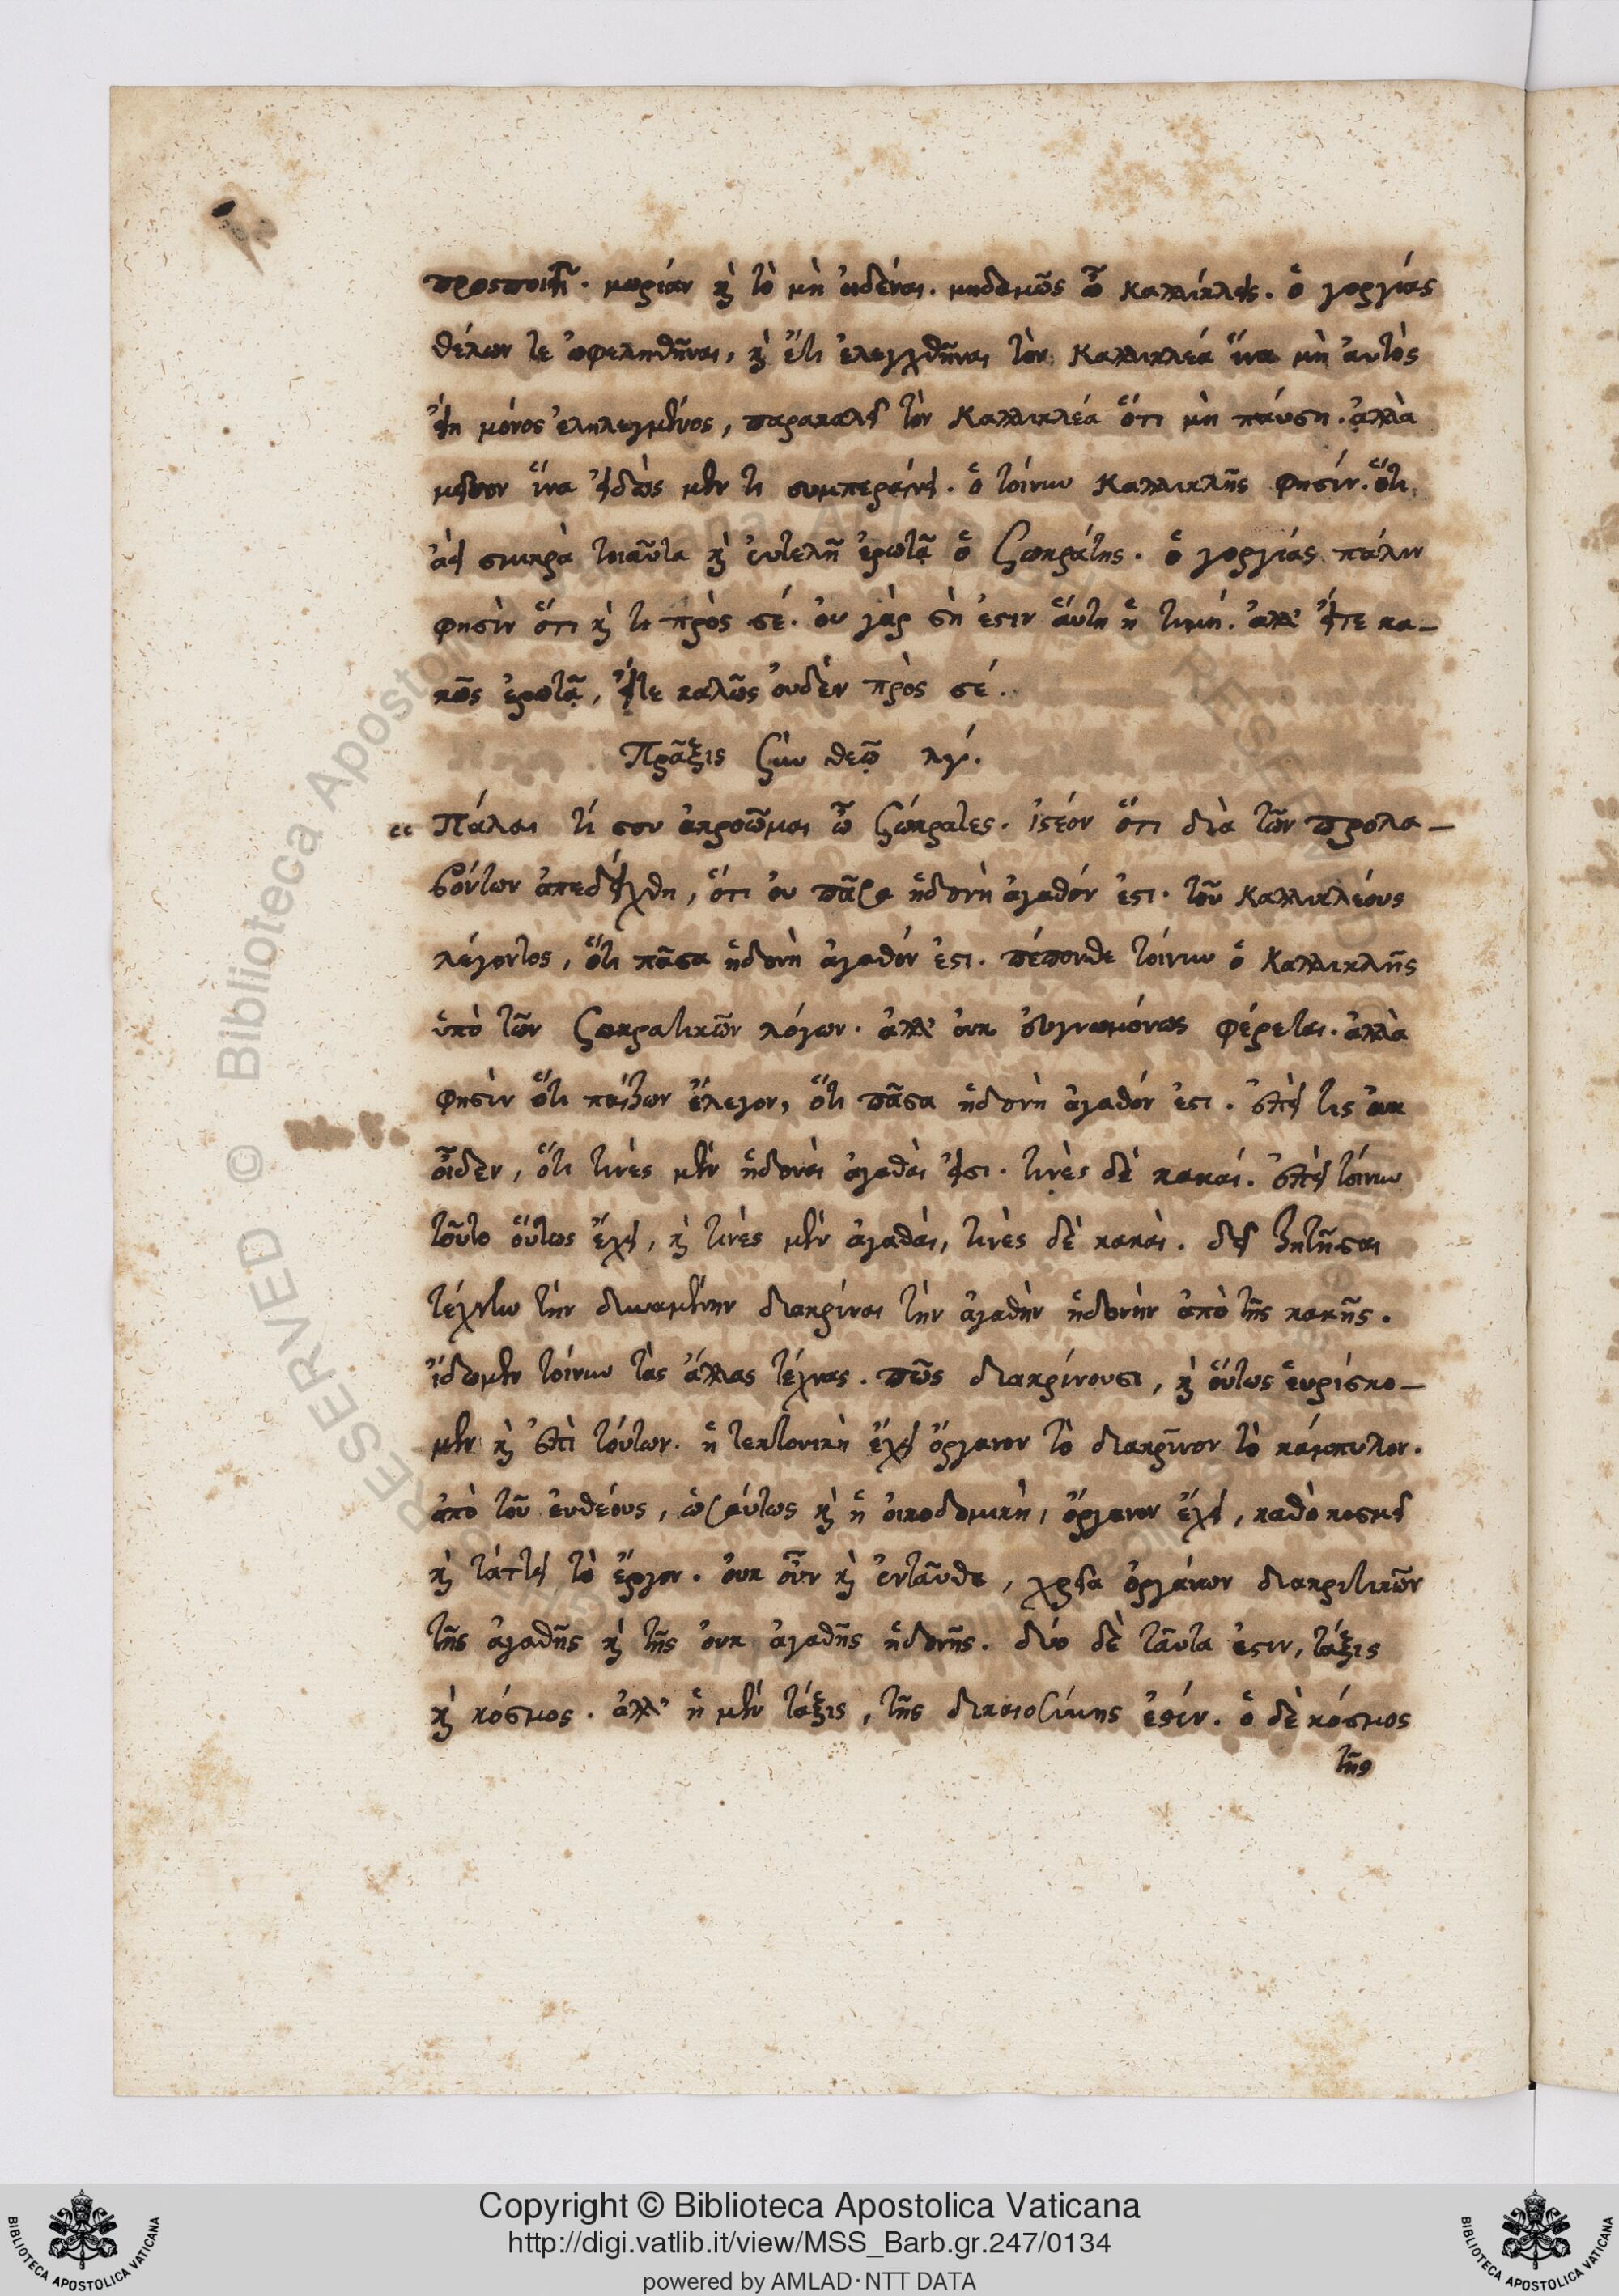 προσποιῇ. μωρίαν καὶ τὸ μὴ εἰδέναι. μηδαμῶς ὦ Καλλίκλεις. ὁ γοργίας
θέλων τε ὠφεληθῆναι, καὶ ἔτι ἐλεγχθῆναι τὸν Καλλικλέα ἵνα μὴ αὐτὸς
εἴη μόνος ἐληλεγμένος, παρακαλεῖ τὸν Καλλικλέα ὅτι μὴ παύση. ἀλλὰ
μεῖνον ἵνα εἰδῶς μέν τι συμπεράνει. ὁ τοίνυν Καλλικλῆς φησίν. ὅτι
ἀεὶ σμικρὰ τοιαῦτα καὶ εὐτελῆ ἐρωτᾷ ὁ Σωκράτης. ὁ γοργίας πάλιν
φησὶν ὅτι καὶ τι πρὸς σέ. οὐ γὰρ σὴ ἐστιν αὕτη ἡ τιμή. ἀλλ' εἴτε κα-
κῶς ἐρωτᾷ, εἴτε καλῶς οὐδὲν πρὸς σέ.
Πρᾶξις σὺν θεῷ λγ'.
Πάλαι τί σου ἀκροῶμαι ὦ Σώκρατες. ἰστέον ὅτι διὰ τῶν προλα-
βόντων ἀπεδείχθη, ὅτι οὐ πᾶσα ἡδονὴ ἀγαθόν ἐστι. τοῦ Καλλικλέους
λέγοντος, ὅτι πᾶσα ἡδονὴ ἀγαθόν ἐστι. πέπονθε τοίνυν ὁ Καλλικλῆς
ὑπὸ τῶν Σωκρατικῶν λόγων. ἀλλ' οὐκ εὐγνωμόνως φέρεται. ἀλλὰ
φησὶν ὅτι παίζων ἔλεγον, ὅτι πᾶσα ἡδονὴ ἀγαθόν ἐστι. ἐπεὶ τις οὐκ
οἶδεν, ὅτι τινὲς μὲν ἡδοναὶ ἀγαθαὶ εἰσι. τινὲς δὲ κακαί. ἐπεὶ τοίνυν
τοῦτο οὕτως ἔχει, καὶ τινὲς μὲν ἀγαθαὶ, τινὲς δὲ κακαὶ. δεῖ ζητῆσαι
τέχνην τὴν δυναμένην διακρίναι τὴν ἀγαθὴν ἡδονὴν ἀπὸ τῆς κακῆς.
ἴδωμεν τοίνυν τὰς ἄλλας τέχνας. πῶς διακρίνουσι, καὶ οὕτως εὑρίσκο-
μεν καὶ ἐπὶ τούτων. ἡ τεκτονικὴ ἔχει ὄργανον τὸ διακρῖνον τὸ κάμπυλον.
ἀπὸ τοῦ εὐθέους, ὡσαύτως καὶ ἡ οἰκοδομικὴ, ὄργανον ἔχει, καθὸ κοσμεῖ
καὶ τάττει τὸ ἔργον. οὐκ οὖν καὶ ἐνταῦθα, χρεία ὀργάνων διακριτικῶν
τῆς ἀγαθῆς καὶ τῆς οὐκ ἀγαθῆς ἡδονῆς. δύο δὲ ταῦτα ἐστιν, τάξις
καὶ κόσμος. ἀλλ' ἡ μὲν τάξις, τῆς δικαιοσύνης ἐστίν. ὁ δὲ κόσμος
τῆς
Copyright © Biblioteca Apostolica Vaticana
http://digi.vatlib.it/view/MSS_Barb.gr.247/0134
powered by AMLAD·NTT DATA